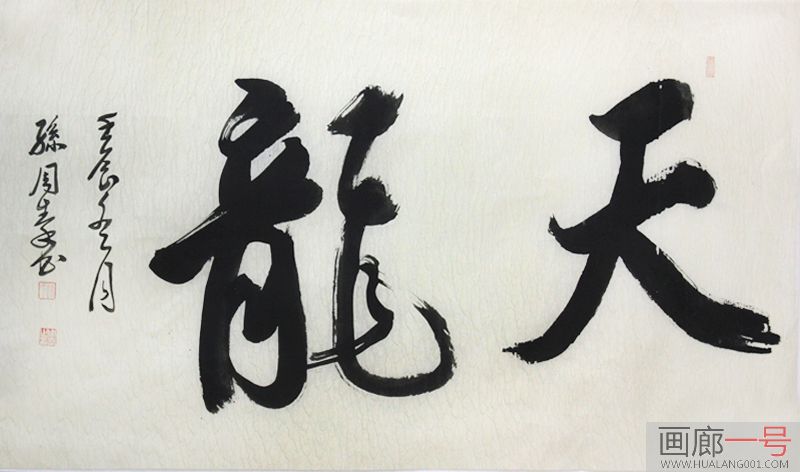 天龍
壬辰冬月
孫周素书
画廊一号
WWW.HUALANG001.COM